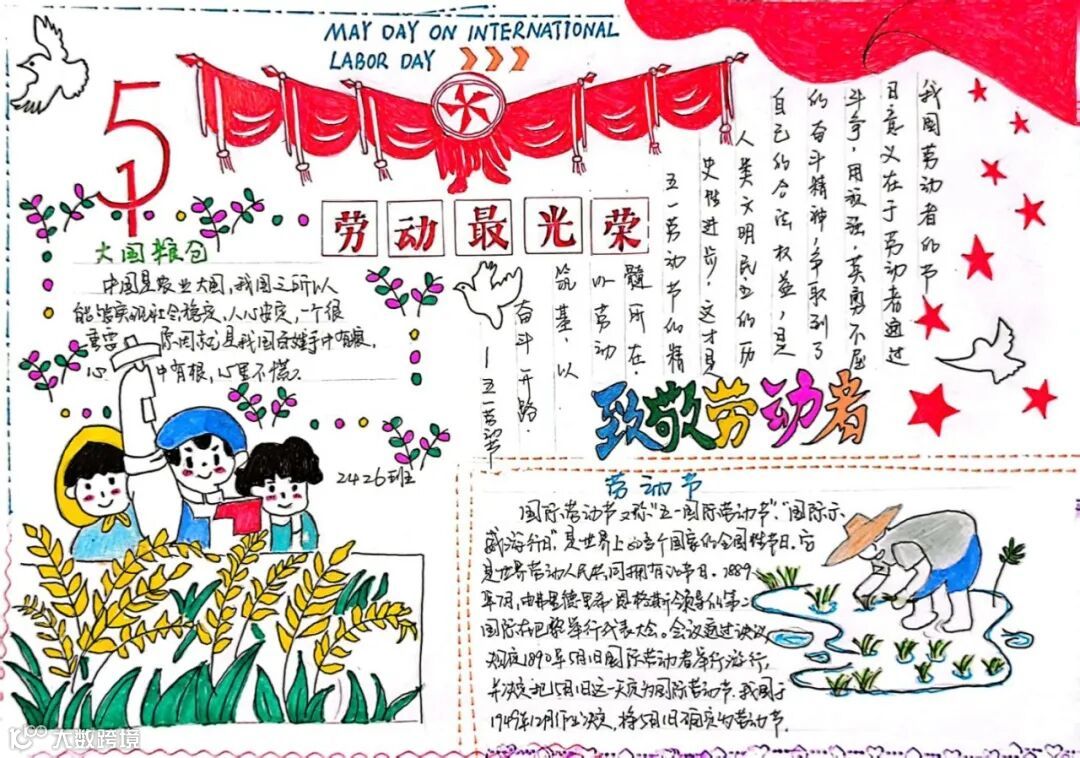 MAY DAY ON INTERNATIONAL
LABOR DAY
5
1
劳动最光荣
大国粮仓
中国是农业大国，我国之所以
能够实现社会稳定，人心安定，一个很
重要
原因就是我国
手中有粮，
心
中有粮，心里不慌。
2426班
我国劳动者的节
日意义在于劳动者通过
斗争，用顽强、英勇不屈
的奋斗精神，争取到了
自己的合法权益，是
人类文明民主的历
史性进步，这才是
五一劳动节的精
髓所在。
以劳动
筑基，以
奋斗开路.
——五一劳动节
致敬劳动者
劳动节
国际劳动节又称“五一国际劳动节”、“国际示
威游行日”，是世界上80多个国家的全国性节日。它
是世界劳动人民共同拥有的节日。1889
年7月，由弗里德里希·恩格斯领导的第二
国际在巴黎举行代表大会。会议通过决议，
规定1890年5月1日国际劳动者举行游行，
并决定把5月1日这一天定为国际劳动节。我国于
1949年12月作出决定，将5月1日确定为劳动节.
大数跨境